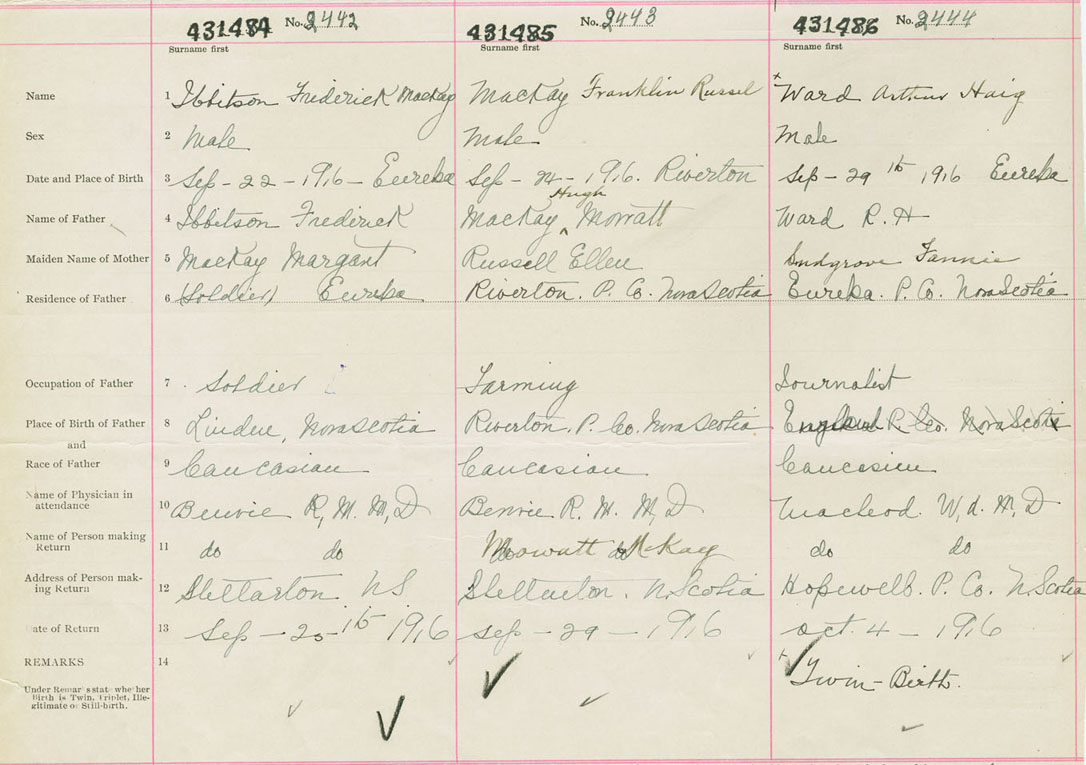 431484 No. 2442 431485 No. 2443 431486 No. 2444
Surname first Surname first Surname first
Name 1 Ibbitson Frederick MacKay MacKay Franklin Russel + Ward Arthur Haig
Sex 2 Male Male Male
Date and Place of Birth 3 Sep - 22 - 1916 - Eureka Sep - 24 - 1916. Riverton Sep - 29th 1916 Eureka
Name of Father 4 Ibbitson Frederick MacKay ^ Hugh Mowatt Ward R. H
Maiden Name of Mother 5 MacKay Margaret Russell Ellen Fannie
Residence of Father 6 (Soldier) Eureka Riverton. P. Co. Nova Scotia Eureka. P. Co. Nova Scotia
Occupation of Father 7 Soldier Farming Journalist
Place of Birth of Father 8 Nova Scotia Riverton. P. Co. Nova Scotia England P. Co. Nova Scotia
and
Race of Father 9 Caucasian Caucasian Caucasian
Name of Physician in
attendance 10 Benvie R, M. M, D Benvie R. M. M, D Macleod. W, d. M, D
Name of Person making
Return 11 do do Mowatt McKay do do
Address of Person mak-
ing Return 12 Stellarton NS Stellarton. N. Scotia Hopewell. P. Co. N. Scotia
Date of Return 13 Sep - 1916 Sep - 29 - 1916 Oct. 4 - 1916
REMARKS 14 + Twin-Birth.
Under Remarks state whether
Birth is Twin, Triplet, Ille-
gitimate or Still-birth.